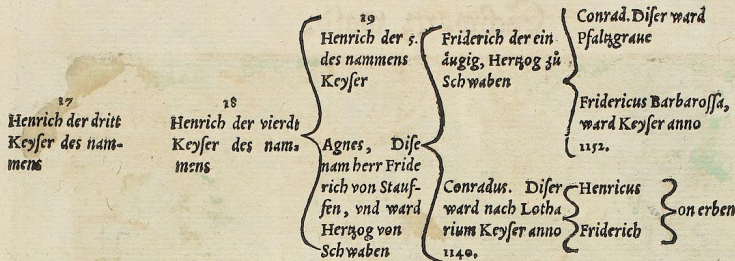 17
Henrich der dritt
Keyser des nam-
mens
18
Henrich der vierdt
Keyser des nam-
mens
19
Henrich der 5.
des nammens
Keyser
Agnes, Dise
nam herr Fride
rich von Stauf-
fen, vnd ward
Hertzog von
Schwaben
Friderich der ein
äugig, Hertzog zů
Schwaben
Conradus. Diser
ward nach Lotha
rium Keyser anno
1140.
Conrad. Diser ward
Pfaltzgraue
Fridericus Barbarossa,
ward Keyser anno
1152.
Henricus
Friderich
on erben